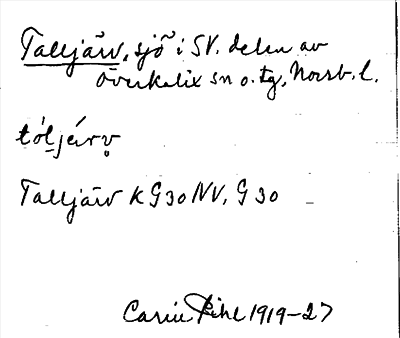 Talljärv, sjö i SV. delen av
Överkalix sn o. tg, Norrb. l.
tóljárv̥
Talljärv K G30 NV, G 30
Carin Pihl 1919-27